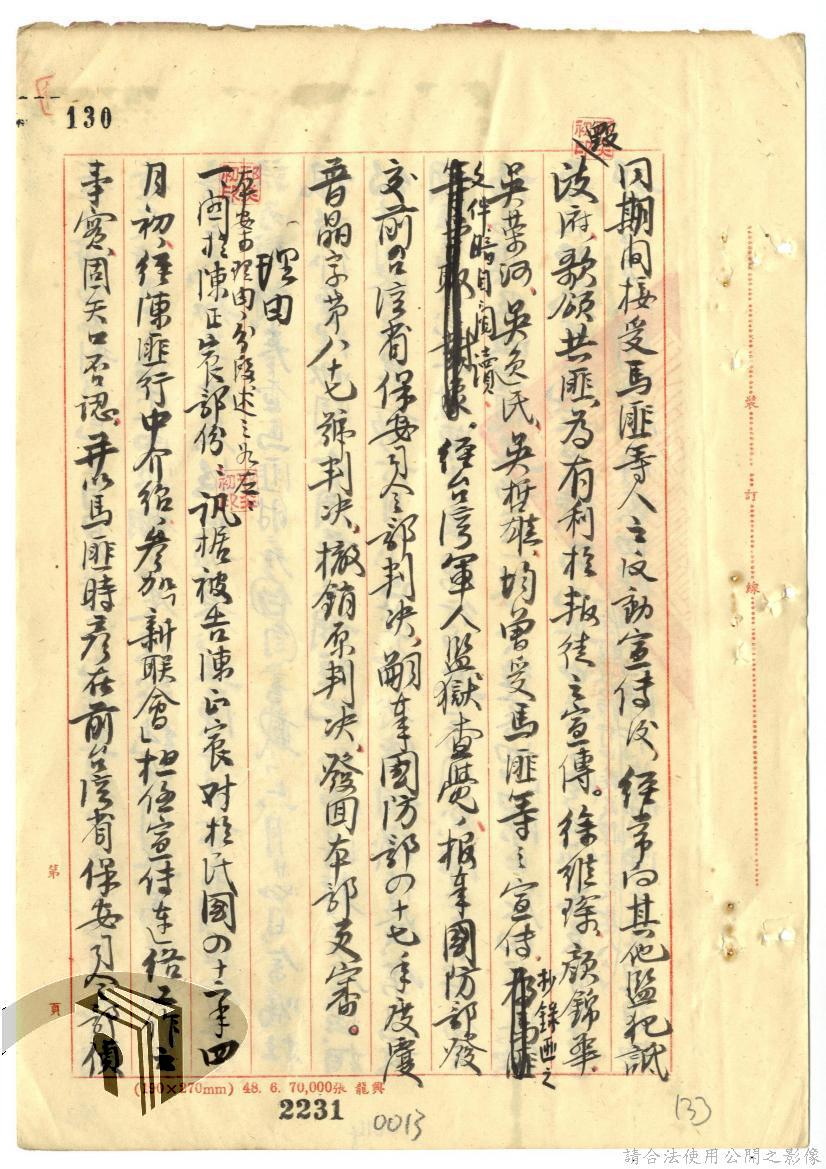 130
同期间接受馬匪等人之反動宣傳後、經常向其他監犯詆毀
政府、歌頌共匪、為有利於叛徒之宣傳。徐維琛、顏錦華、
吳榮河、吳逸民、吳哲雄、均曾受馬匪等之宣傳、抄錄匪之
文件暗自閱讀、經台灣軍人監獄查覺、報奉國防部發
交前台湾省保安司令部判决、嗣奉國防部四十七年度覆
普晶字第八十七號判决、撤銷原判决、發回本部更審。
理由
本案理由、分段述之如左：
一、関於陳正宸部份：訊据被告陳正宸对於民國四十二年四
月初、經陳匪行中介紹、參加「新联會」担任宣傳連络工作之
事實、固矢口否認、并以馬匪時彥在前台湾省保安司令部偵
裝 訂 線
第 頁
(190×270mm) 48. 6. 70,000張 龍興
2231
0013
(3)
請合法使用公開之影像